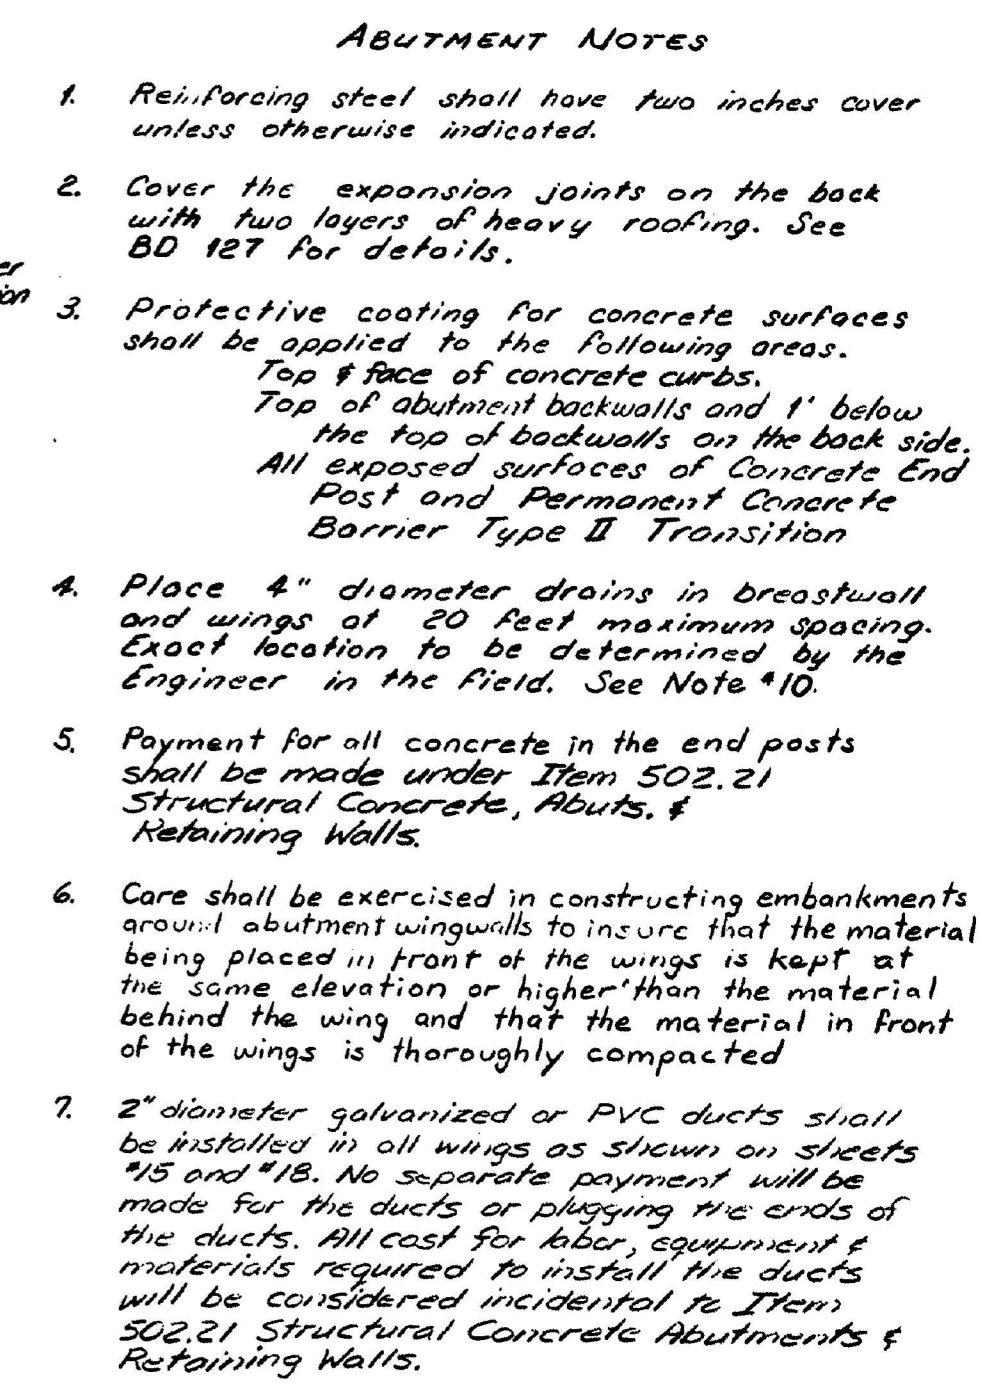 ABUTMENT NOTES
1. Reinforcing steel shall have two inches cover
unless otherwise indicated.
2. Cover the expansion joints on the back
with two layers of heavy roofing. See
BD 127 for details.
3. Protective coating for concrete surfaces
shall be applied to the following areas.
Top & face of concrete curbs.
Top of abutment backwalls and 1' below
the top of backwalls on the back side.
All exposed surfaces of Concrete End
Post and Permanent Concrete
Barrier Type II Transition
4. Place 4" diameter drains in breastwall
and wings at 20 feet maximum spacing.
Exact location to be determined by the
Engineer in the field. See Note #10.
5. Payment for all concrete in the end posts
shall be made under Item 502.21
Structural Concrete, Abuts. &
Retaining Walls.
6. Care shall be exercised in constructing embankments
around abutment wingwalls to insure that the material
being placed in front of the wings is kept at
the same elevation or higher than the material
behind the wing and that the material in front
of the wings is thoroughly compacted
7. 2" diameter galvanized or PVC ducts shall
be installed in all wings as shown on sheets
#15 and #18. No separate payment will be
made for the ducts or plugging the ends of
the ducts. All cost for labor, equipment &
materials required to install the ducts
will be considered incidental to Item
502.21 Structural Concrete Abutments &
Retaining Walls.